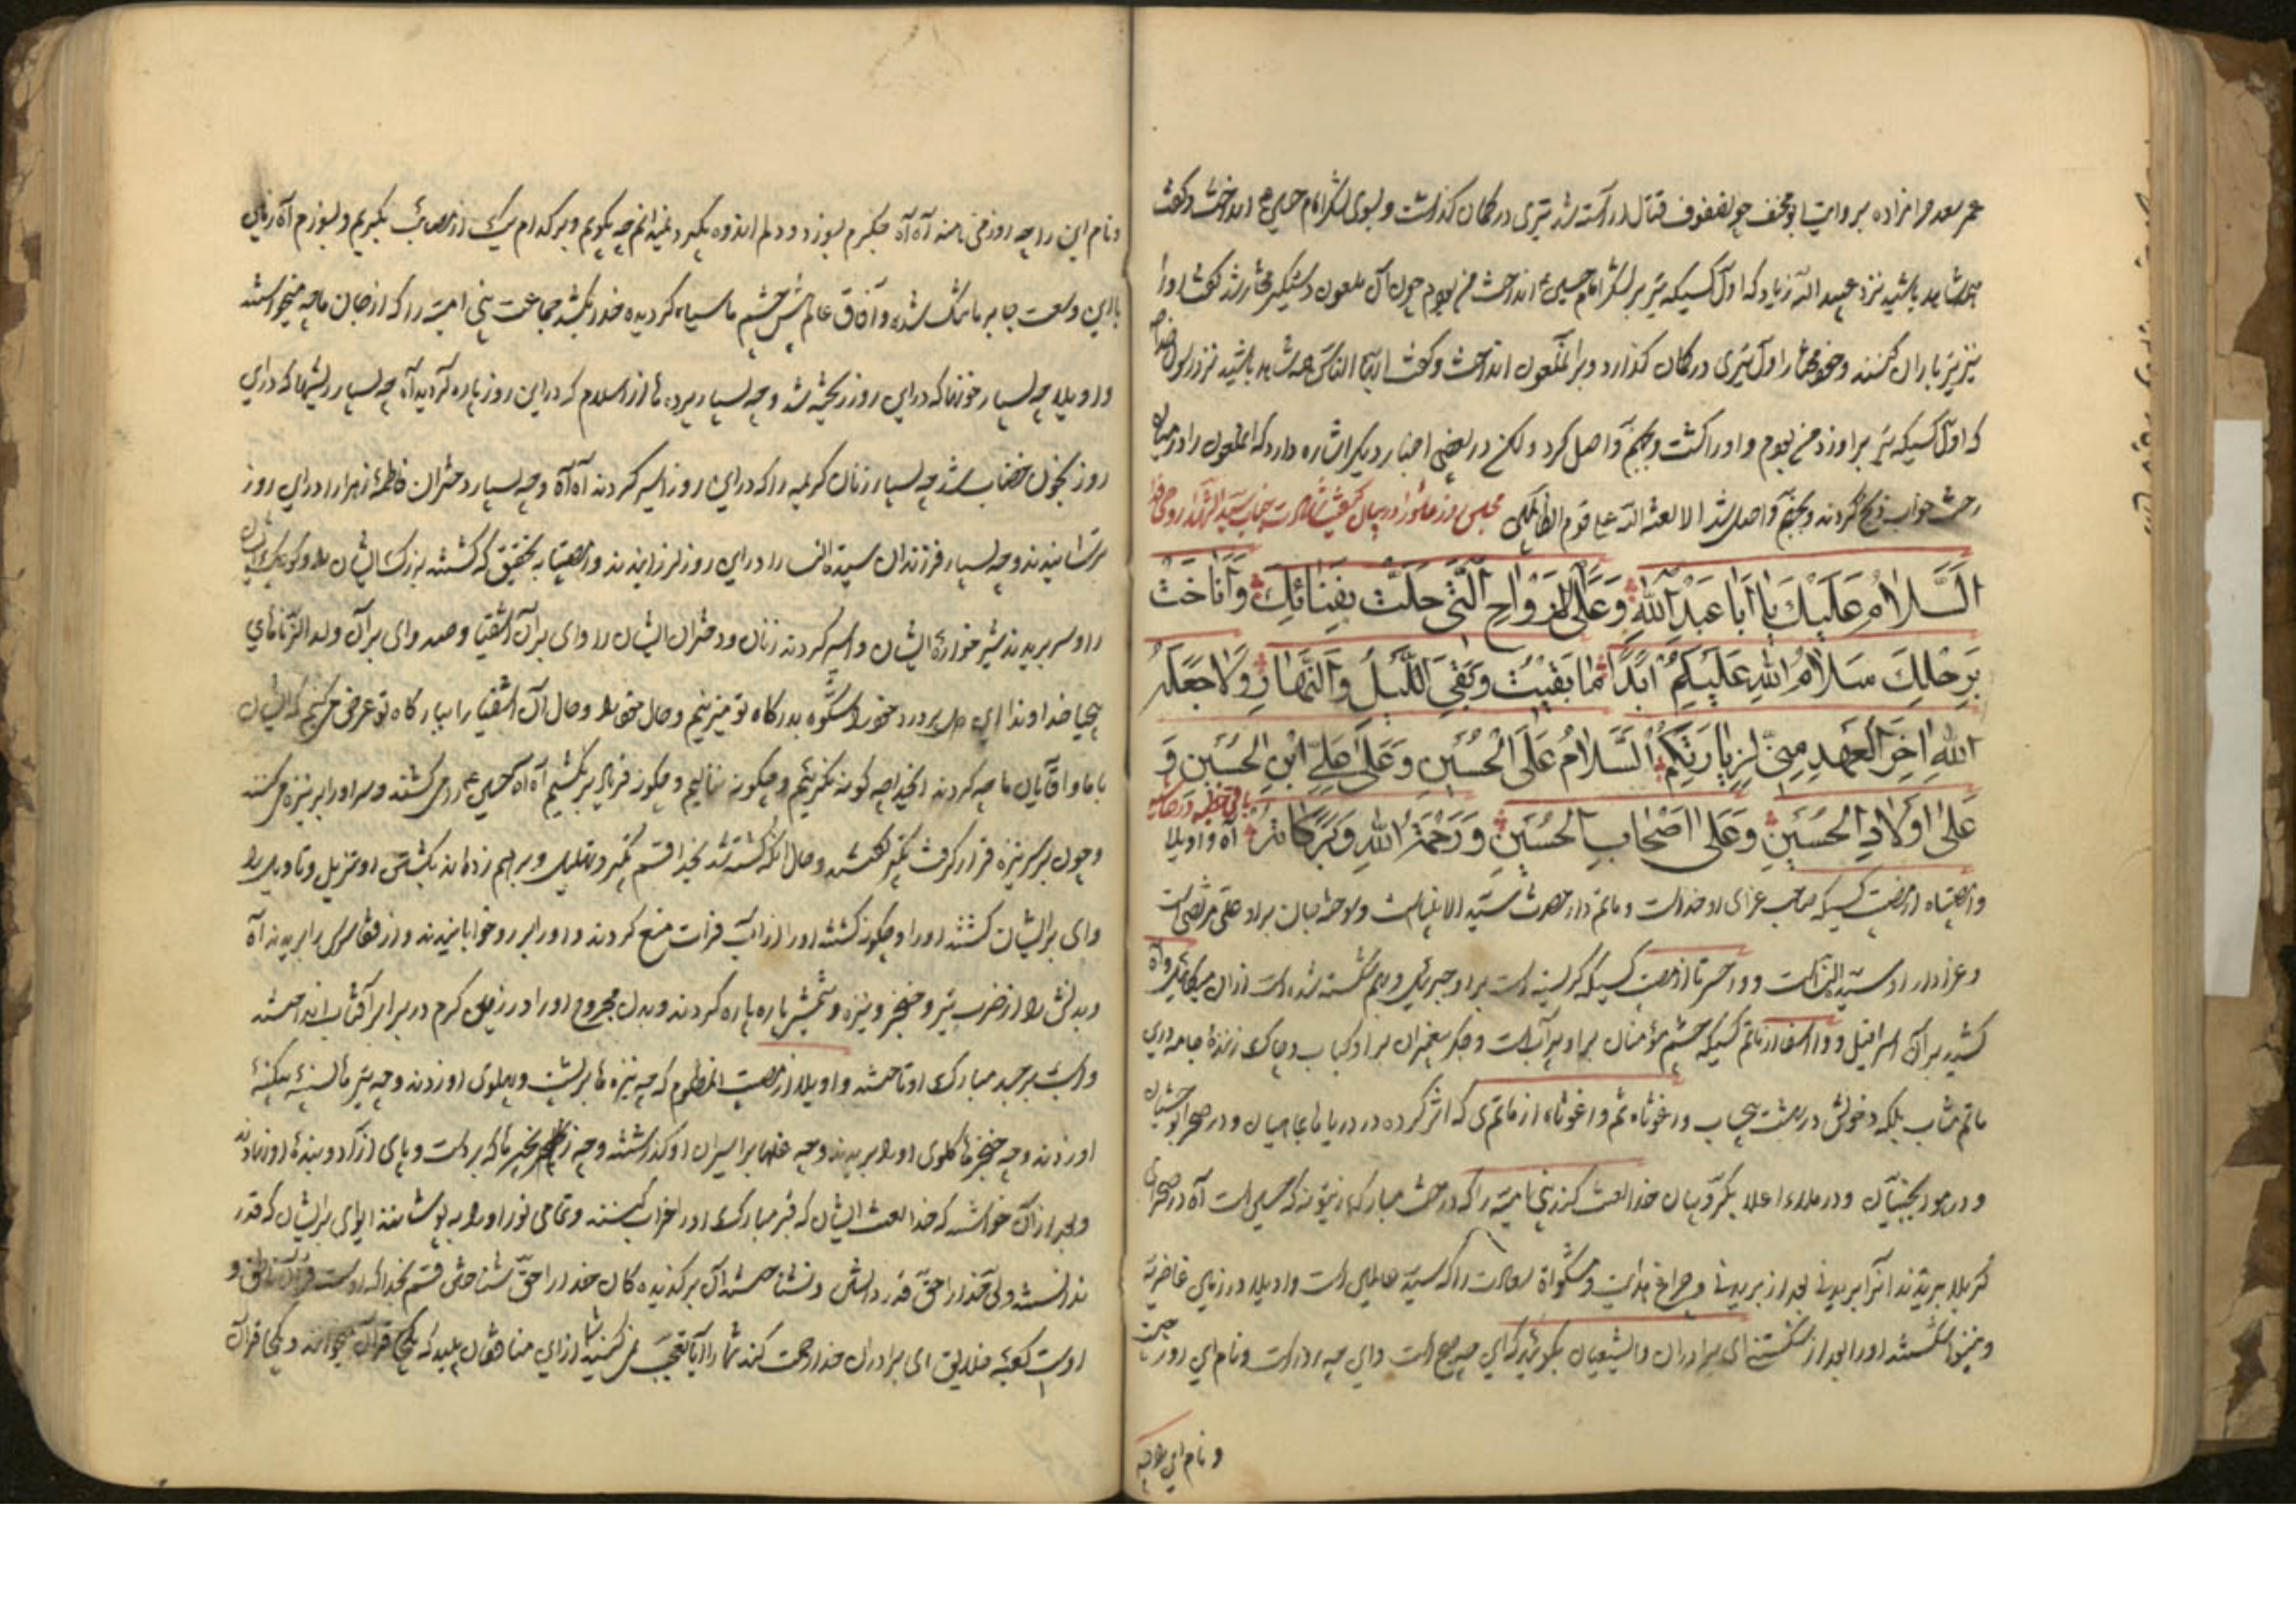 عمر سعد حرامزاده بروایت ابو مخنف چو لصفوف قتال اراسته شد تیری در کمان کذاشت و بسوی لشکر امام حسین ع انداخت و کفت
شاهد باشید نزد عبید الله زیاد که اول کسیکه تیر بر لشکر امام حسین ع انداخت من بودم چون آن ملعون دستکیر مختار شد کفت او را
تیر باران کنند و خود مختار اول تیری در کمان کذارد و بر آنملعون انداخت و کفت ایها الناس همه شاهد باشید نزد رسول خدا
که اول کسیکه تیر بر او زد من بودم و او را کشت و بجهنم واصل کرد و لکن در بعضی اخبار دیکر اشاره دارد که آنملعون را در میان
رخت خواب ذبح کردند و بجهنم واصل شد الا لعنة الله علی قوم الظالمین مجلس روز عاشورا در بیان کیفیت شهادت جناب سید الشهداء روحی فداه
اَلسَّلامُ عَلَیْكَ یا اَبا عَبْدِ اللهِ وَعَلَی الاَرْواحِ الَّتی حَلَّتْ بِفِنائِكَ وَاَناخَتْ
بِرَحْلِكَ سَلامُ اللهِ عَلَیْكُمْ اَبَدًا ما بَقیتُ وَبَقِیَ اللَّیْلُ وَالنَّهارُ وَلا جَعَلَهُ
اللهُ اخِرَ الْعَهْدِ مِنّی لِزِیارَتِكُمْ اَلسَّلامُ عَلَی الْحُسَیْنِ وَعَلی عَلِیِّ ابْنِ الْحُسَیْنِ وَ
عَلی اَوْلادِ الْحُسَیْنِ وَعَلی اَصْحابِ الْحُسَیْنِ وَرَحْمَةُ اللهِ وَبَرَكاتُهُ آه واویلا
وامصیبتاه از مصیبت کسیکه صاحب عزای او خداست و ماتم دار حضرت سید الانبیاست و نوحه بر او علی مرتضی است
و عزادار او سیدة النساست و واحسرتا از مصیبت کسیکه کریسته است بر او جبرئیل و درهم شکسته شده است از آن میکائیل و آه
کشید بر آن اسرافیل و وا اسفا از ماتم کسیکه چشم مؤمنان بر او پر آبست و جکر پیغمبران بر او کباب و چاك زننده جامه در این
ماتم مثاب بلکه دخولش در بهشت بیحساب واغوثاه ثم واغوثاه از ماتمی که اثر کرده در دریا ماهیان و در صحرا وحشیان
و در هوا جنیان و در ملاء اعلا بکروبیان خدا لعنت کند بنی امیه را که درخت مبارکه زیتونه که حسین است آه در صحرای
کربلا بریدند آنرا بریدنی بعد از بریدنی و چراغ هدایت و مشکواة سعادت را که سید عالمیان است واویلا در زمین غاضریه
شکستند او را بعد از شکستنی ای برادران و ای شیعیان بکوئید که این چه صبح است و این چه روز است و نام این روز
و نام این را چه
و نام این را چه روز می نامند آه آه جکرم بسوزد و دلم اندوه بکیرد نمیدانم چه بکویم و بر کدام یك از مصائب بکریم و بسوزم آه زمین
با این وسعت جا بر ما تنك شده و آفاق عالم پیش چشم ما سیاه کردیده خدا بکشد جماعت بنی امیه را که از جان ما چه میخواستند
واویلا چه بسیار خونها که در این روز ریخته شد و چه بسیار پرده ها از اسلام که در این روز پاره کردید آه چه بسیار ریشها که در این
روز بخون خضاب شد چه بسیار زنان کریمه را که در این روز اسیر کردند آه آه و چه بسیار دختران فاطمه زهرا را در این روز
ترسانیدند و چه بسیار فرزندان سیدة النساء را در این روز لرزانیدند وامصیبتا بتحقیق که کشتند بزرك ایشان را و کوچك ایشان
را و سر بریدند شیر خواره ایشان و اسیر کردند زنان و دختران ایشان را وای بر آن اشقیا و صد وای بر آن ولد الزناهای
بیحیا خداوندا این دل پر درد خود را شکوه بدرکاه تو میبریم و حال خود را و حال آن اشقیا را ببارکاه تو عرض میکنیم که ایشان
با ما و آقایان ما چه کردند ایخدا چه کونه نکریئیم و چکونه ننالیم و چکونه فریاد بر نکشیم آه آه حسین ع را می کشتند و سر او را بر نیزه میکنند
و چون بر سر نیزه قرار کرفت تکبر کفتند و حال آنکه کشته شد بخدا قسم تکبیر و تهلیل و بر بهم زده اند بکشتن او تنزیل و تاویل را
وای بر ایشان کشتند او را و چکونه کشتند او را از آب فرات منع کردند و او را بر رو خوابانیدند و از قفا سرش را بریدند آه
و بدنش را از ضرب تیر و خنجر و نیزه و شمشیر پاره پاره کردند و بدن مجروح او را در زمین کرم در برابر آفتاب انداختند
و اسب بر جسد مبارك او تاختند واویلا از مصیبت آنمظلوم که چه نیزه ها بر پشت و پهلوی او زدند و چه تیر ها بسینه بیکینه
او زدند و چه خنجر ها کلوی او را بریدند و چه غلها بر اسیران او کذاشتند و چه زنجیر ها که بر دست و پای
و بعد از آن خواستند که خدا لعنت ایشان که قبر مبارك او را خراب کنند و تمامی نور او را بپوشانند ایوای بر ایشان که قدر
ندانستند ولی خدا را حق قدر دانستن و نشناختند آن برکزیده کان خدا را حق شناختن قسم بخدا که اوست قرآن ناطق و
اوست کعبه خلایق ای برادران خدا رحمت کند شما را آیا تعجب نمیکنید شما از این منافقان پلید که یکجا قرآن میخوانند و یکجا قرآن